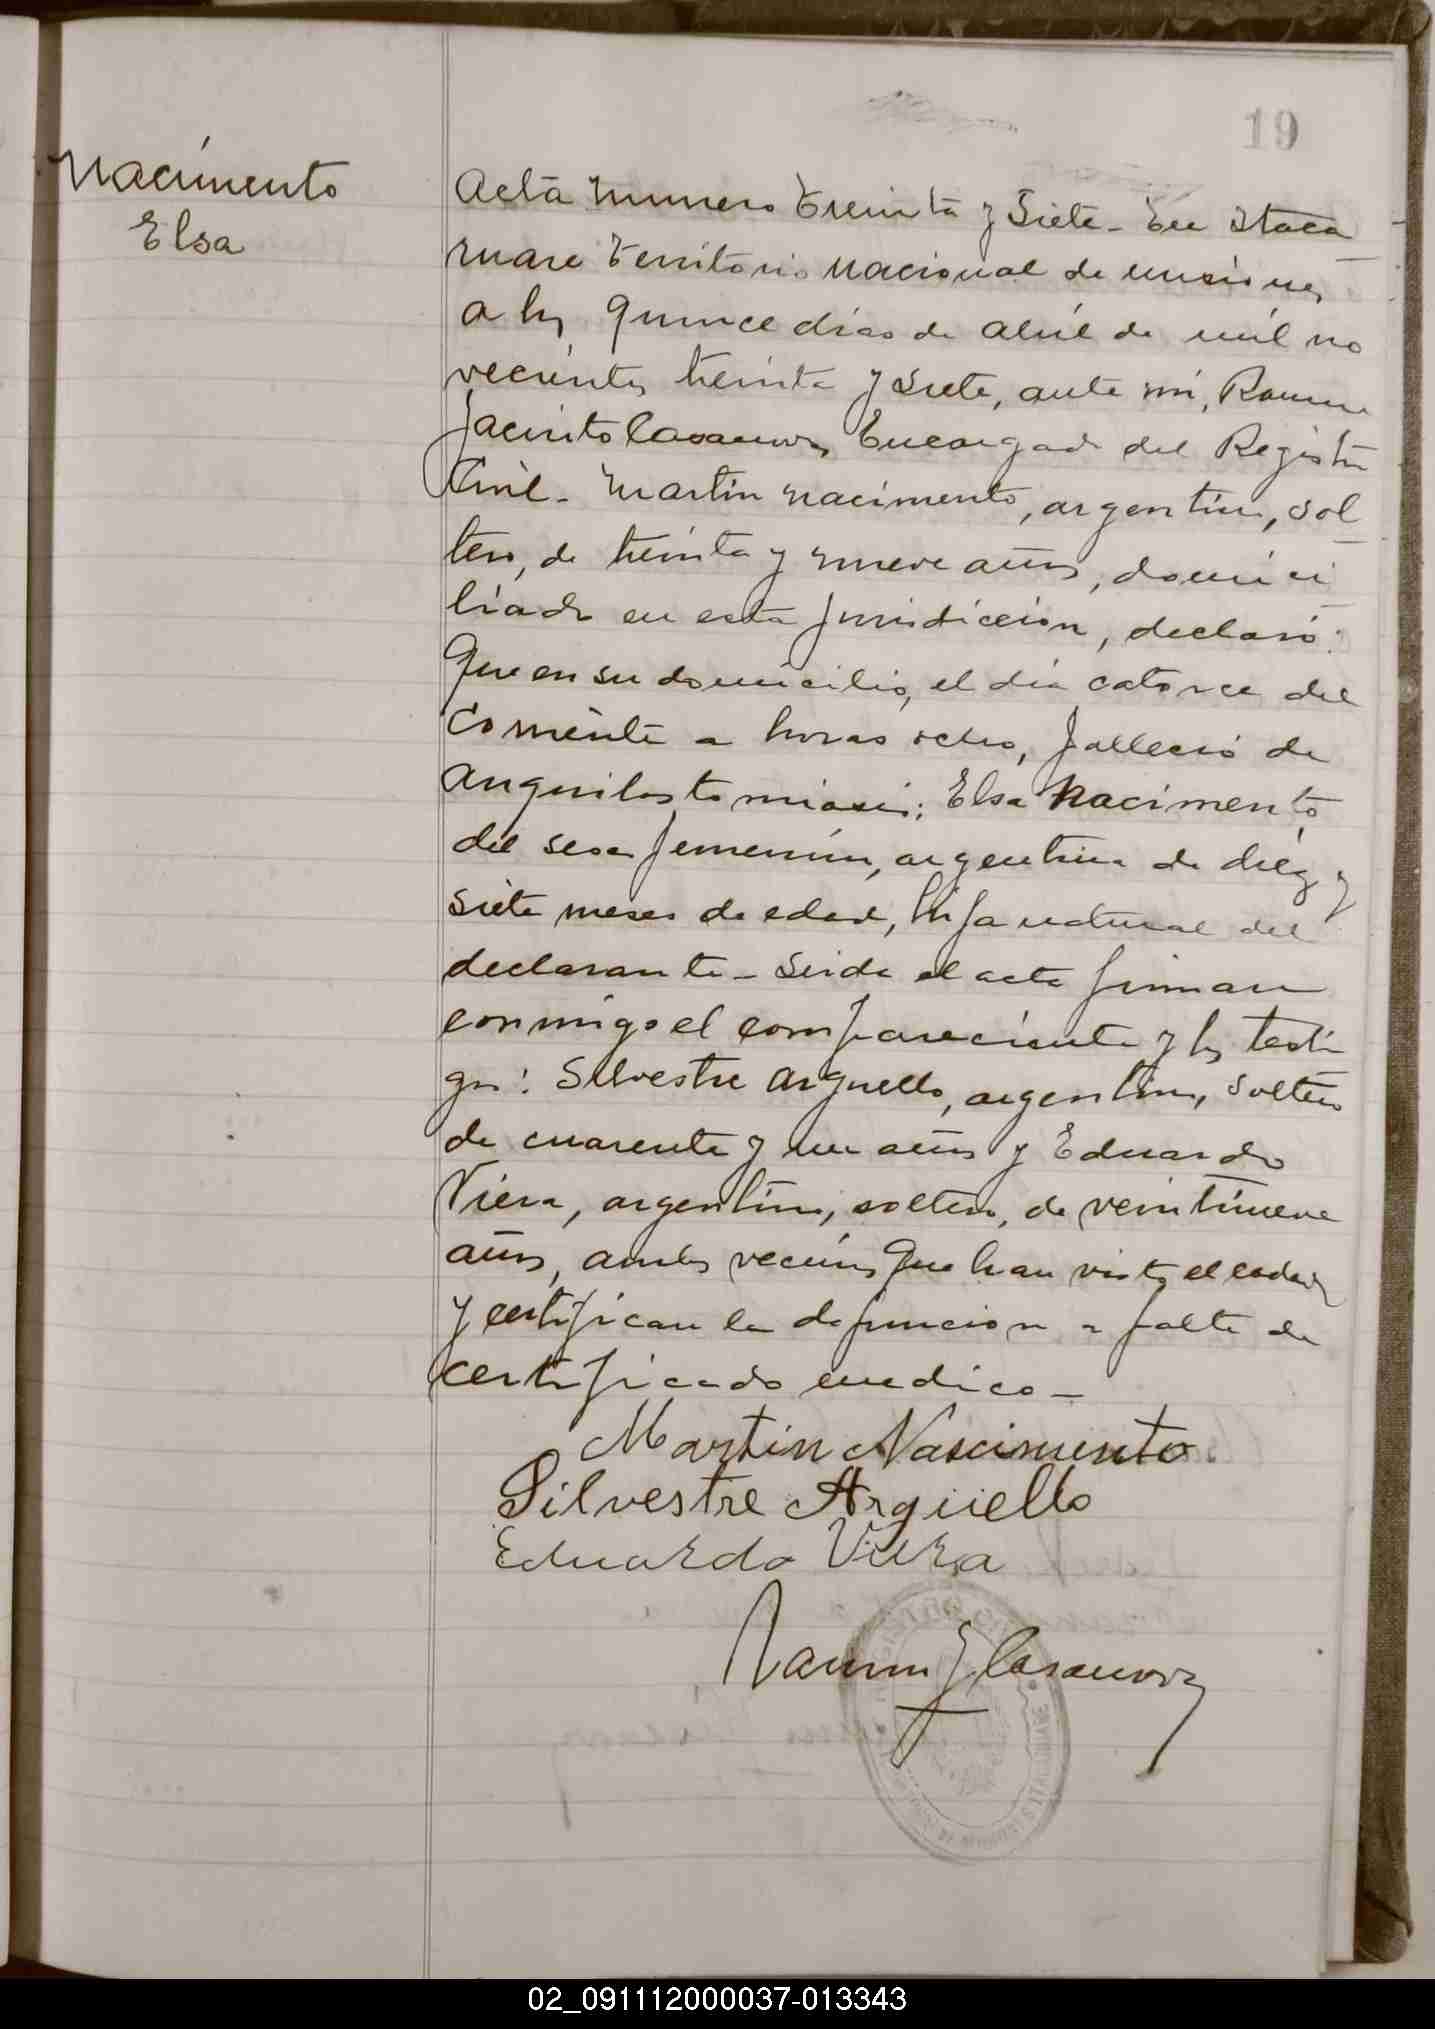 19
Nacimento
Elsa
Acta numero treinta y Siete - En Itaca
ruare territorio nacional de misiones
a los quince dias de abril de mil no
vecientos treinta y siete, ante mi, Ramon
Jacinto Casanova Encargado del Registro
Civil - Martin Nacimento, argentino, sol
tero, de treinta y nueve años, domici
liado en esta jurisdiccion, declaró:
Que en su domicilio, el dia catorce del
corriente a horas ocho, falleció de
anquilostomiasis; Elsa Nacimento
del sexo femenino, argentina de diez y
siete meses de edad, hija natural del
declarante - Leida el acta firman
conmigo el compareciente y los testi
gos: Silvestre Arguello, argentino, soltero
de cuarenta y un años y Eduardo
Viera, argentino, soltero, de veintinueve
años, ambos vecinos que han visto el cadaver
y certifican la defuncion a falta de
certificado medico -
Martin Nascimento
Silvestre Argüello
Eduardo Viera
Ramon J Casanova
02_091112000037-013343